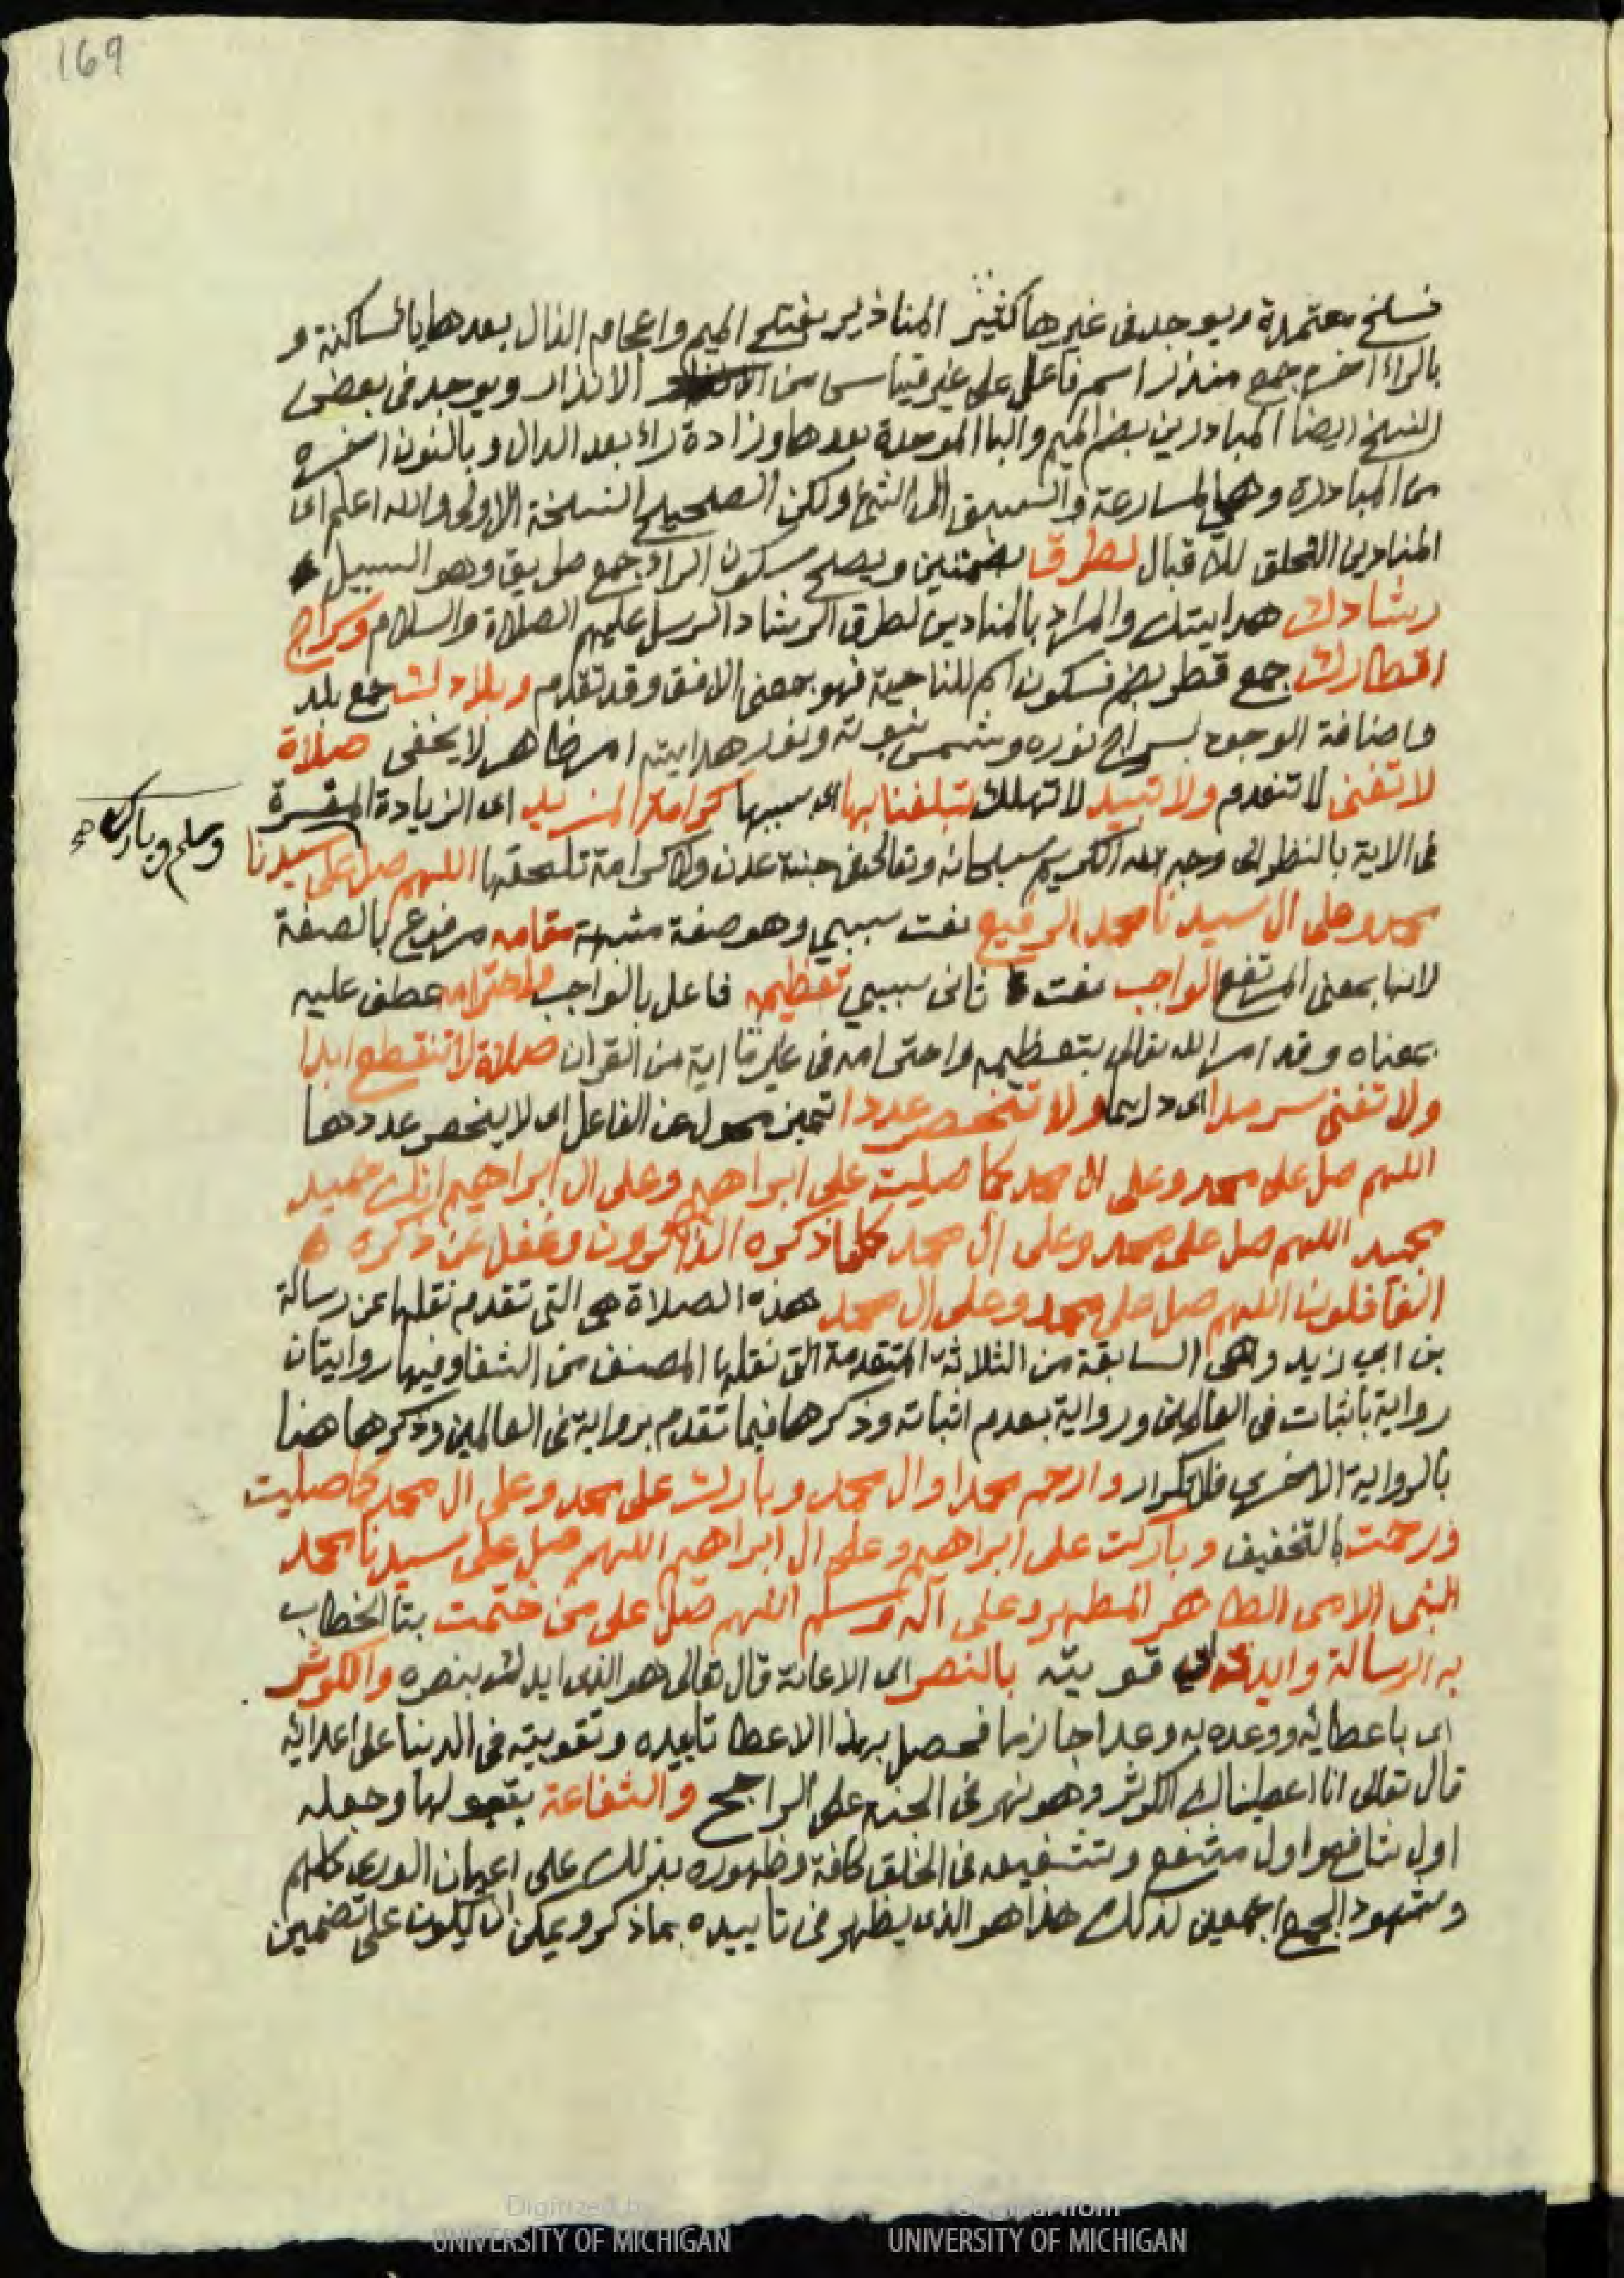 169
نسخ معتمدة ويوجد في غيرها كثير المناذير بفتح الميم واعجام الذال بعدها ياء ساكنة و
بالراء اخره جمع منذر اسم فاعل على غير قياس من الانذار ويوجد في بعض
النسخ ايضا المبادرين بضم الميم والبا الموحدة بعدها وزادة راء بعد الدال وبالنون اخره
من المبادرة وهي المسارعة والسبق الى الشئ ولكن الصحيح النسخة الاولى والله اعلم اى
المنادين الخلق للاقبال لطرق بضمتين ويصح سكون الراء جمع طريق وهو السبيل
رشادك هدايتك والمراد بالمنادين لطرق الرشاد الرسل عليهم الصلاة والسلام وسراج
اقطارك جمع قطر بضم فسكون اسم للناحية فهو بمعنى الافق وقد تقدم وبلادك جمع بلد
واضافة الوجود بسراج نوره وشمس نبوته ونور هدايته امر ظاهر لا يخفى صلاة
لا تفنى لا تنعدم ولا تبيد لا تهلك تبلغنا بها اى بسببها كرامة المزيد اى الزيادة المفسرة
في الاية بالنظر الى وجه الله الكريم سبحانه وتعالى في جنة عدن ولا كرامة تلحقها اللهم صل على سيدنا
وسلم وبارك صح
محمد وعلى ال سيدنا محمد الرفيع نعت سببي وهو صفة مشبهة مقامه مرفوع بالصفة
لانها بمعنى المرتفع الواجب نعت ثانى سببي تعظيمه فاعل بالواجب واحترامه عطف عليه
بمعناه وقد امر الله تعالى بتعظيمه واحترامه في غير ما اية من القران صلاة لا تنقطع ابدا
ولا تفنى سرمدا اى دايما ولا تنحصر عددا تمييز محول عن الفاعل اى لا ينحصر عددها
اللهم صل على محمد وعلى ال محمد كما صليت على ابراهيم وعلى ال ابراهيم انك حميد
مجيد اللهم صل على محمد وعلى ال محمد كلما ذكره الذاكرون وغفل عن ذكره
الغافلون اللهم صل على محمد وعلى ال محمد هذه الصلاة هي التى تقدم نقلها عن رسالة
بن ابي زيد وهي السابقة من الثلاثة المتقدمة التى نقلها المصنف من الشفا وفيها روايتان
رواية باثبات في العالمين ورواية بعدم اثباته وذكرها فيما تقدم برواية في العالمين وذكرها هنا
بالرواية الاخرى فلا تكرار وارحم محمدا وال محمد وبارك على محمد وعلى ال محمد كما صليت
ورحمت بالتخفيف وباركت على ابراهيم وعلى ال ابراهيم اللهم صل على سيدنا محمد
النبى الامى الطاهر المطهر وعلى آله وسلم اللهم صل على من ختمت بتا الخطاب
به الرسالة وايدته اى قويته بالنصر اى الاعانة قال تعالى هو الذى ايدك بنصره والكوثر
اى باعطائه ووعده به وعدا جازما فحصل بهذا الاعطا تاييده وتقويته في الدنيا على اعدائه
قال تعالى انا اعطيناك الكوثر وهو نهر في الجنة على الراجح والشفاعة بقبولها وجعله
اول شافع واول مشفع وتشفيعه في الخلق كافة وظهوره بذلك على اعيان الورى كلهم
وشهود الجمع اجمعين لذلك هذا هو الذى يظهر في تاييده بما ذكر ويمكن ان يكون على تضمين